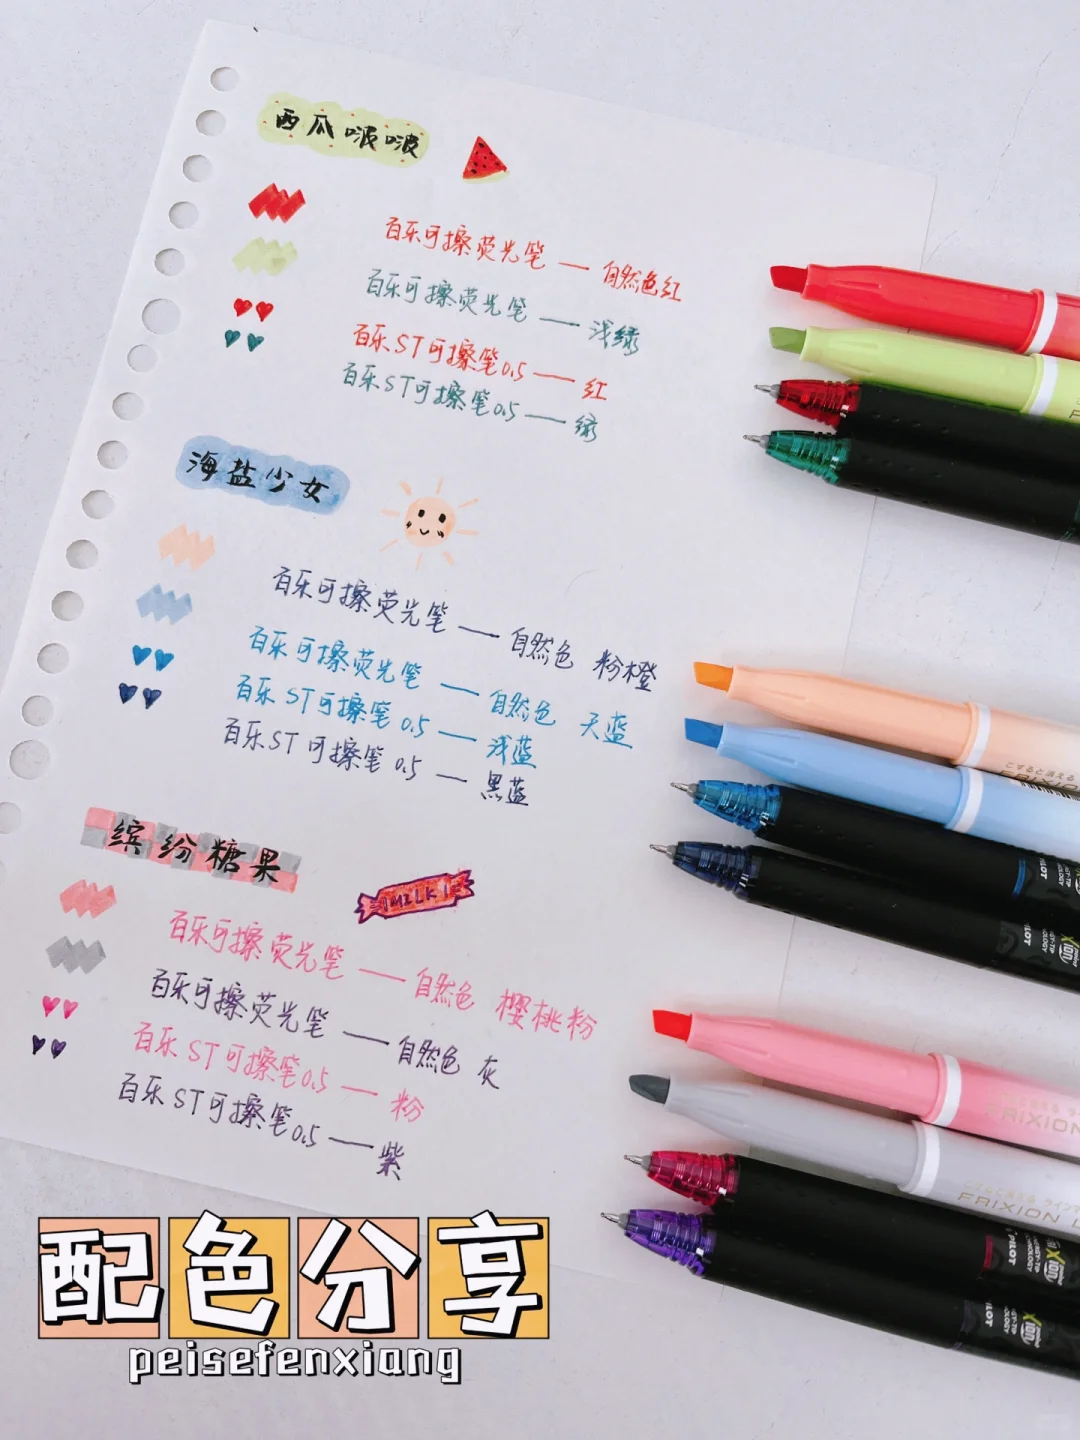 西瓜啵啵
百乐可擦荧光笔 — 自然色红
百乐可擦荧光笔 — 浅绿
百乐ST可擦笔0.5 — 红
百乐ST可擦笔0.5 — 绿
海盐少女
百乐可擦荧光笔 — 自然色 粉橙
百乐可擦荧光笔 — 自然色 天蓝
百乐ST可擦笔0.5 — 浅蓝
百乐ST可擦笔0.5 — 黑蓝
こすると消える
FRIXION
PILOT
缤纷糖果
MILK
百乐可擦荧光笔 — 自然色 樱桃粉
百乐可擦荧光笔 — 自然色 灰
百乐ST可擦笔0.5 — 粉
百乐ST可擦笔0.5 — 紫
FRIXION
FRIXION L
PILOT
配色分享
peisefenxiang